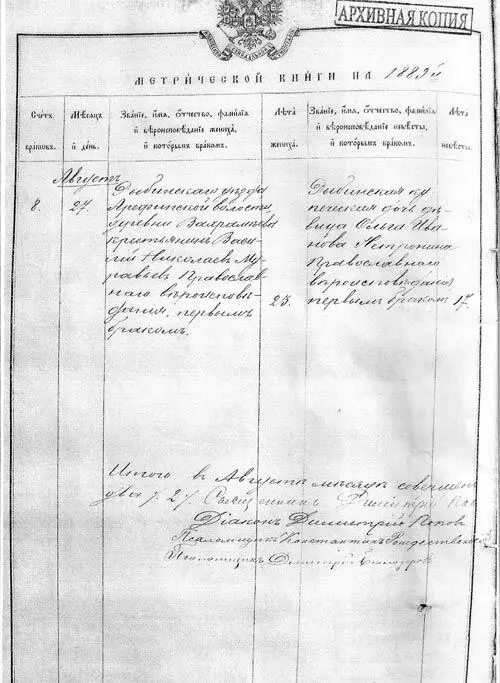 АРХИВНАЯ КОПИЯ
МЕТРИЧЕСКОЙ КНИГИ НА 1889й
Счетъ браковъ.
Мѣсяцъ и день.
Званіе, имя, отчество, фамилія и вѣроисповѣданіе жениха, и которымъ бракомъ.
Лѣта жениха.
Званіе, имя, отчество, фамилія и вѣроисповѣданіе невѣсты, и которымъ бракомъ.
Лѣта невѣсты.
Августъ
8.
27.
уѣзда
волости,
деревни
крестьянинъ Васи
лій Николаевъ Му
равьевъ, Православ
наго вѣроисповѣ-
данія, первымъ
бракомъ.
23.
ку
печеская дочь дѣ
вица Ольга Ива
нова
Православнаго
вѣроисповѣданія
первымъ бракомъ
17.
Итого въ Августѣ мѣсяцѣ
два 7. 27. Священникъ Димитрій
Діаконъ Димитрій Поповъ
Псаломщикъ Константинъ Рождественскій
Псаломщикъ Димитрій